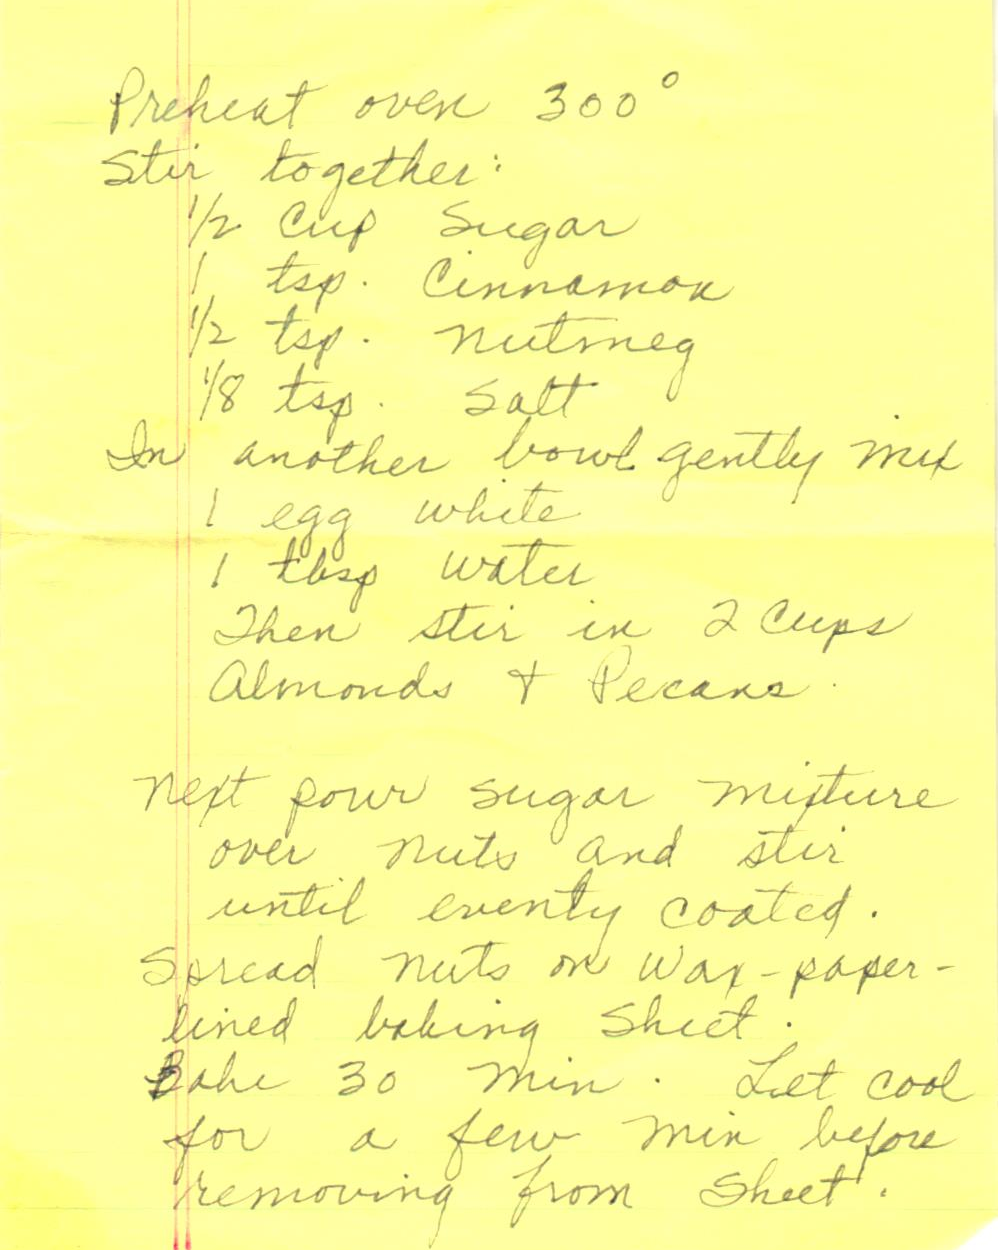 Preheat oven 300°
Stir together:
1/2 Cup Sugar
1 tsp. Cinnamon
1/2 tsp. nutmeg
1/8 tsp. Salt
In another bowl gently mix
1 egg white
1 tbsp water
Then stir in 2 Cups
Almonds + Pecans.
Next pour sugar mixture
over nuts and stir
until evenly coated.
Spread nuts on wax-paper-
lined baking sheet.
Bake 30 min. Let cool
for a few min before
removing from sheet.